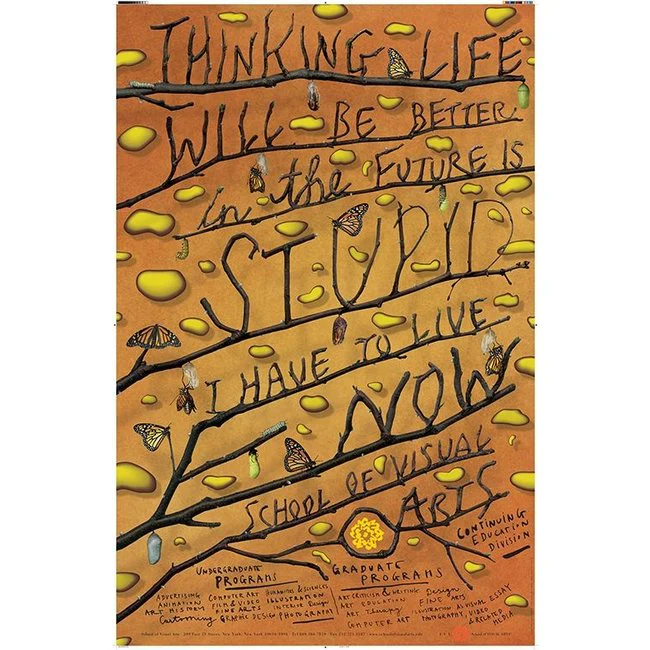 THINKING LIFE
WILL BE BETTER
in the FUTURE IS
STUPID
I HAVE TO LIVE
NOW
SCHOOL OF VISUAL
ARTS
CONTINUING
EDUCATION
DIVISION
UNDERGRADUATE
PROGRAMS
ADVERTISING COMPUTER ART HUMANITIES & SCIENCES
ANIMATION FILM & VIDEO ILLUSTRATION
ART HISTORY FINE ARTS INTERIOR DESIGN
Cartooning GRAPHIC DESIGN PHOTOGRAPHY
GRADUATE
PROGRAMS
ART CRITICISM & WRITING Design
ART EDUCATION FINE ARTS
ART Therapy ILLUSTRATION AS VISUAL ESSAY
COMPUTER ART PHOTOGRAPHY, VIDEO
& RELATED
MEDIA
School of Visual Arts 209 East 23 Street, New York, New York